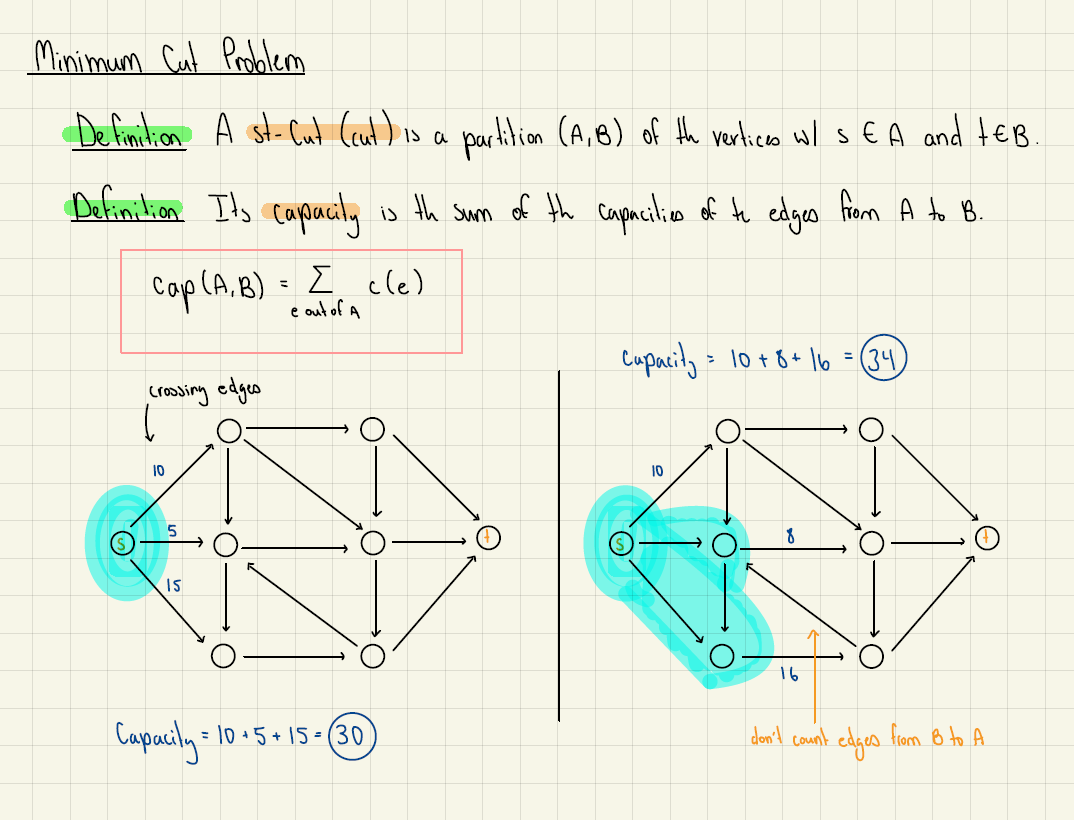 Minimum Cut Problem
Definition A st-Cut (cut) is a partition (A,B) of th vertices w/ s ∈ A and t ∈ B.
Definition Its capacity is th sum of th capacities of th edges from A to B.
cap(A,B) = Σ c(e)
e out of A
Capacity = 10 + 8 + 16 = 34
crossing edges
10
5
s
t
15
Capacity = 10 + 5 + 15 = 30
10
8
s
t
16
don't count edges from B to A